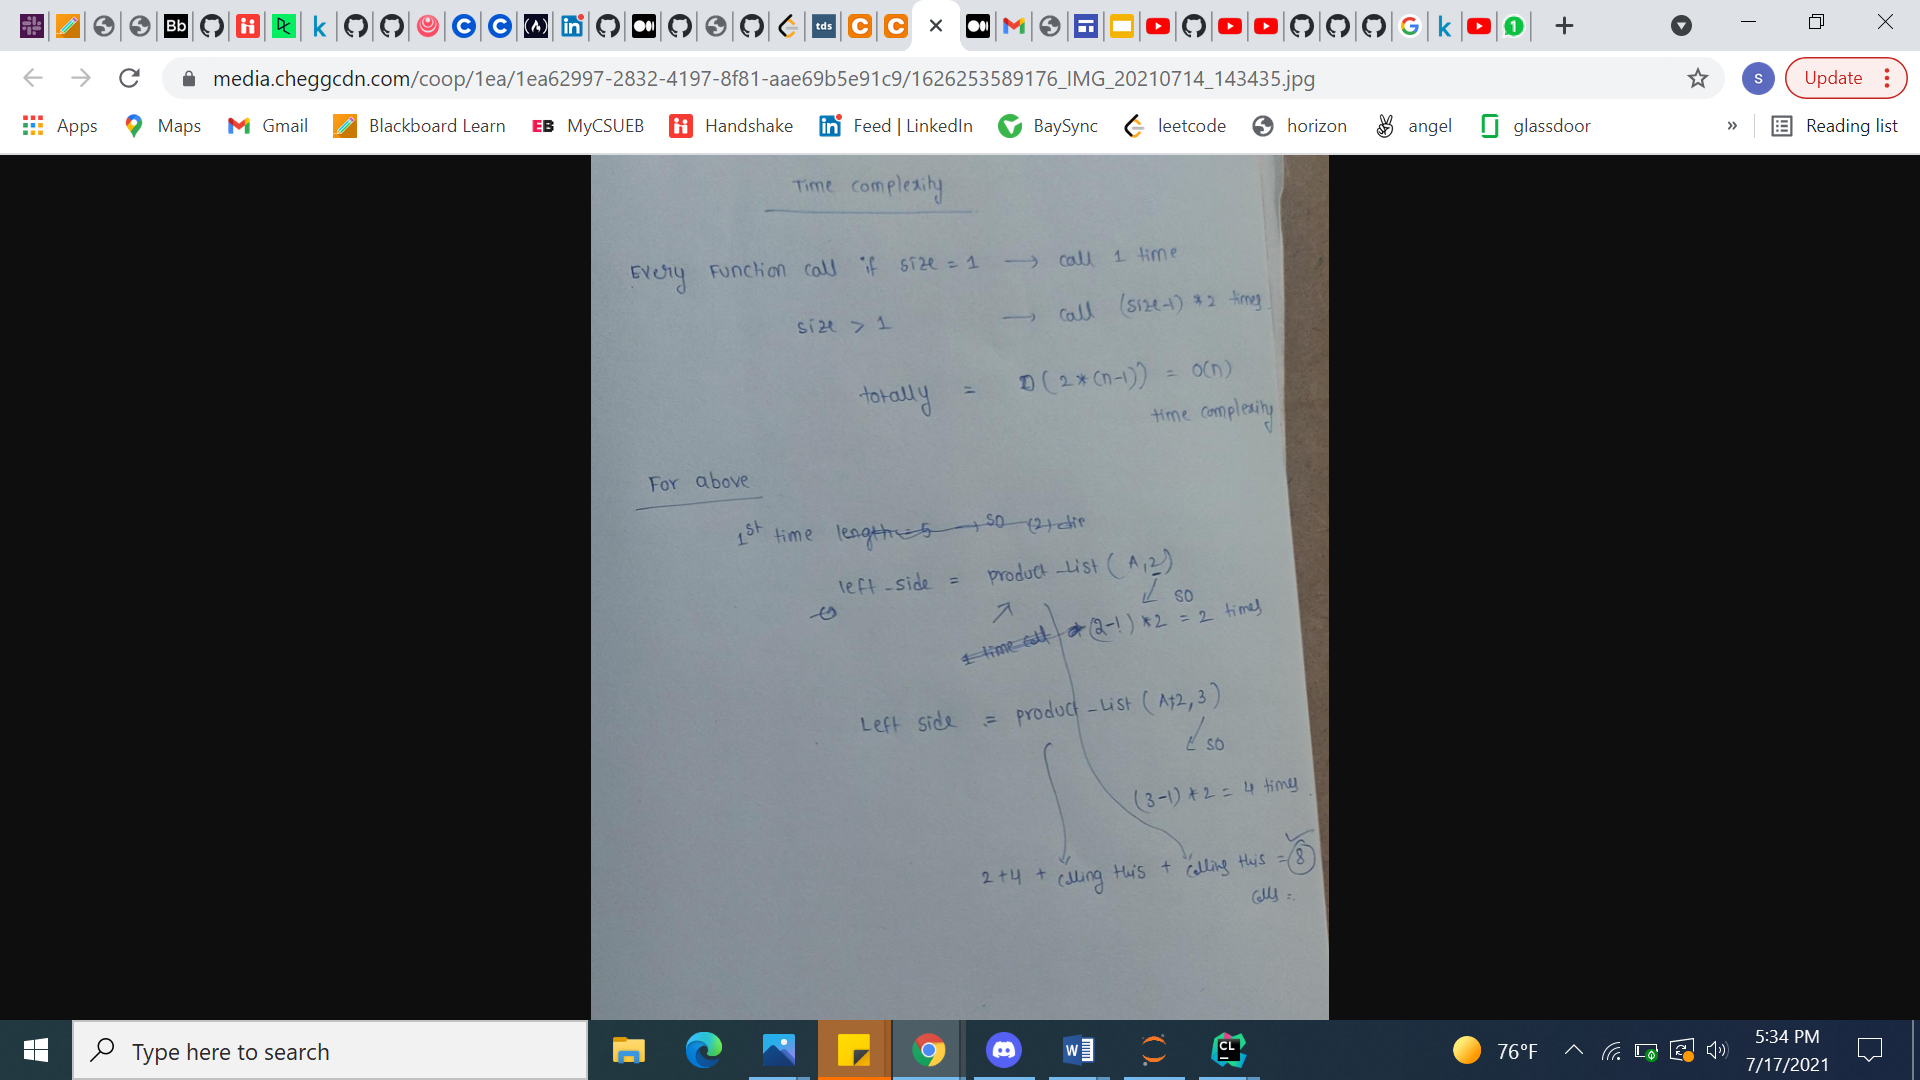 media.cheggcdn.com/coop/1ea/1ea62997-2832-4197-8f81-aae69b5e91c9/1626253589176_IMG_20210714_143435.jpg
S
Update
Apps Maps Gmail Blackboard Learn EB MyCSUEB Handshake Feed | LinkedIn BaySync leetcode horizon angel glassdoor » Reading list
Time complexity
Every Function call if size = 1 → call 1 time
size > 1 → call (size-1) * 2 times.
totally = O(2*(n-1)) = O(n)
time complexity
For above
1st time length = 5 → so
left-side = product-List (A,2)
so
1 time call (2-1) *2 = 2 times
Left side = product-List (A+2,3)
so
(3-1) * 2 = 4 times.
2+4 + calling this + calling this = 8
calls =
Type here to search
76°F
5:34 PM
7/17/2021